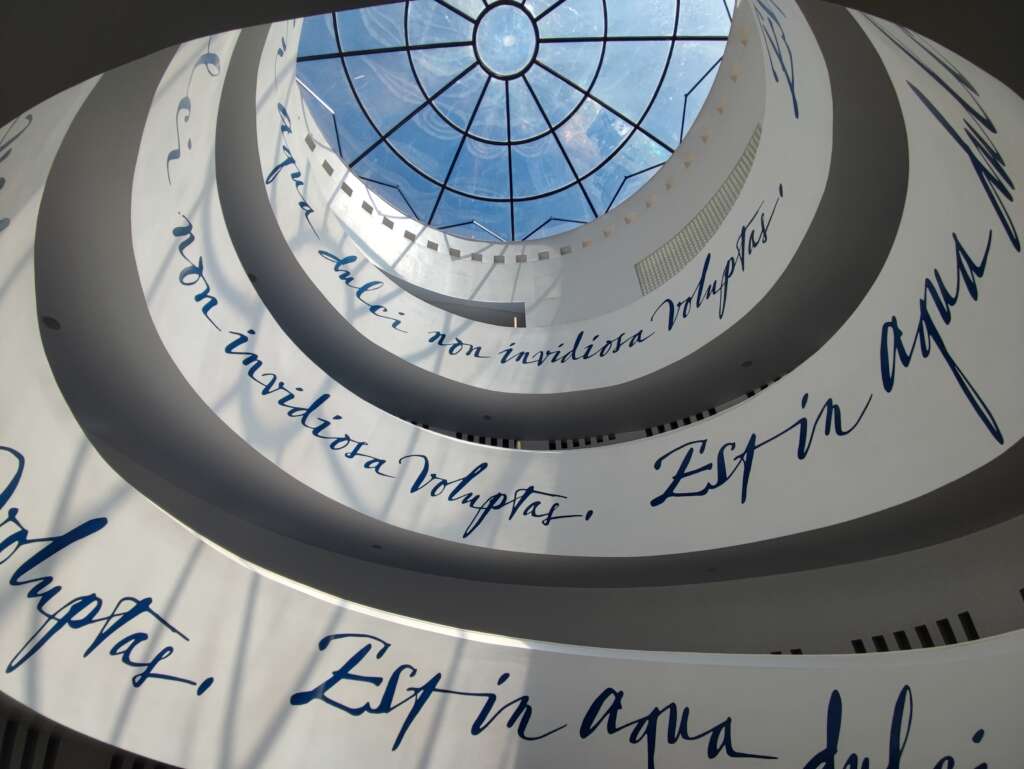 aqua dulci non invidiosa voluptas. Est
non invidiosa voluptas. Est in aqua dulci
voluptas. Est in aqua dulci